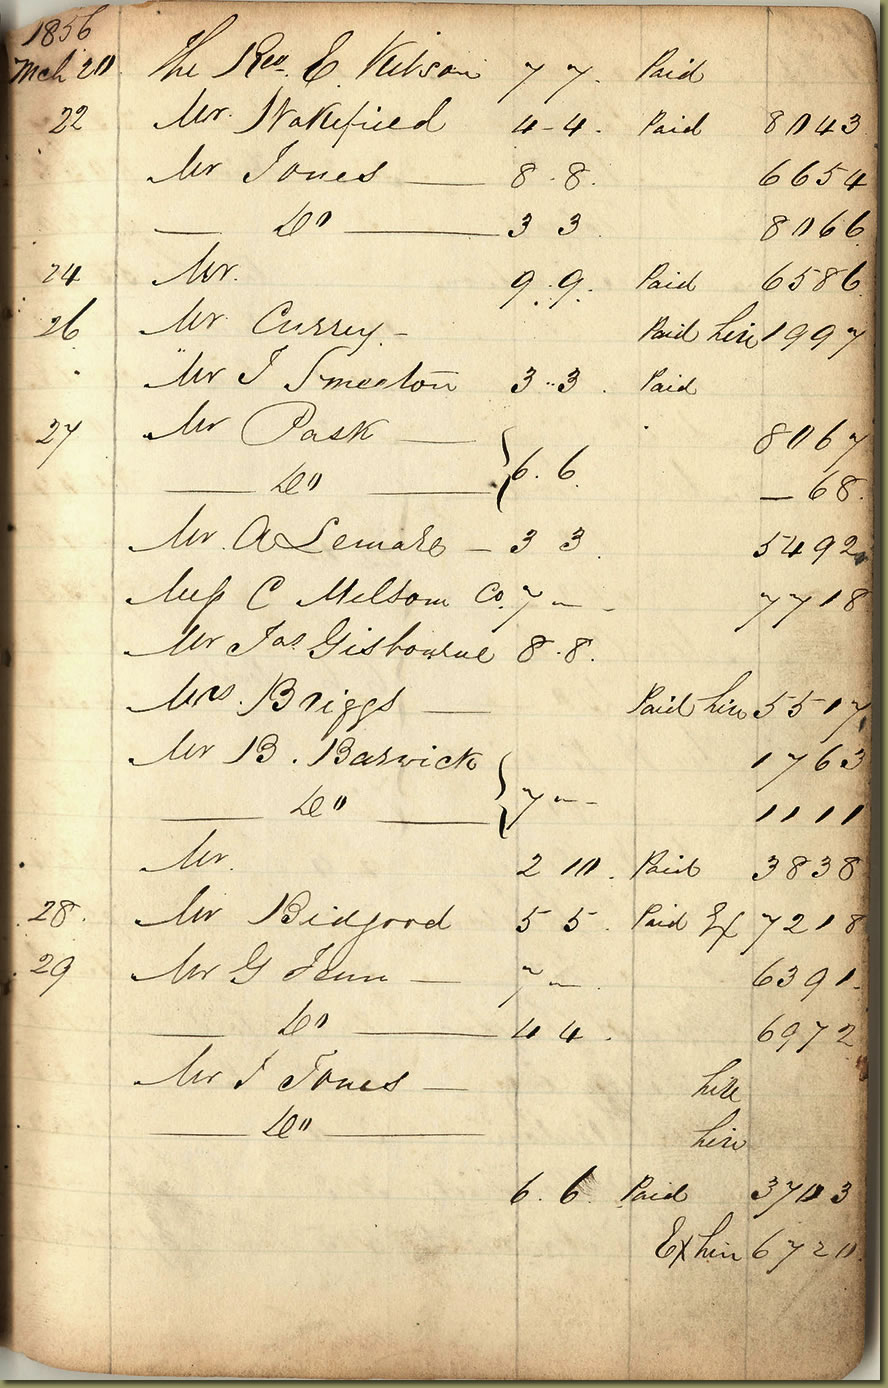 1856
Mch 20 The Rev. E Kilson 7 7. Paid
22 Mr. Wakefield 4-4. Paid 8043
Mr Jones — 8.8. 6654
— Do — 3 3. 8066
24 Mr. 9.9. Paid 6586
26 Mr Currey - Paid hire 1997
Mr J Smeeton 3..3. Paid
27 Mr Pask — 8067
— Do — 6.6. — 68.
Mr. A Lemare — 3 3. 5492
C Milsom Co. 7 — - 7718
Mr Jas Gisbourne 8.8.
Mrs. Briggs — Paid hire 5517
Mr B. Barwick 1763
— Do — 7 — - 1111
Mr. 2 10. Paid 3838
28. Mr Bidgood 5 5. Paid Ex 7218
29 Mr G Fenn — 7 — . 6391.
— Do — 4 4. 6972
Mr J Jones — hire
— Do — hire
6.6 Paid 3703
Ex hire 6720